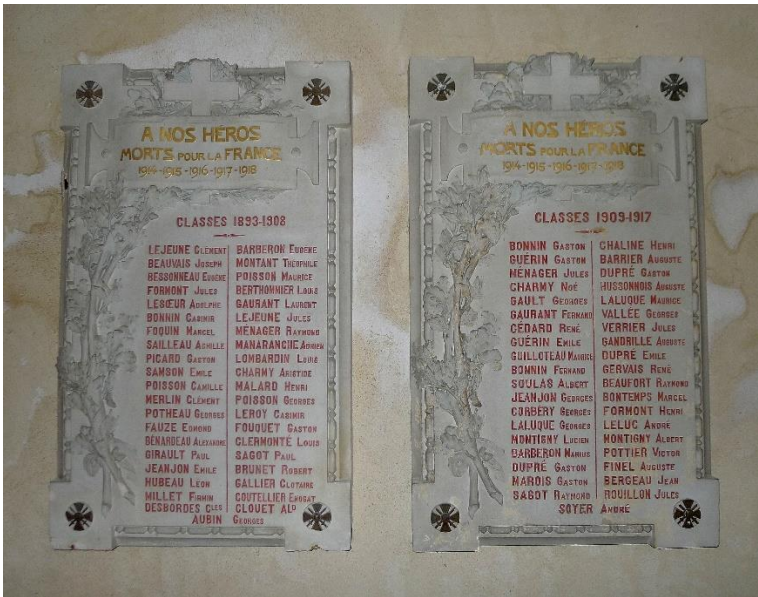 A NOS HÉROS
MORTS POUR LA FRANCE
1914-1915-1916-1917-1918
CLASSES 1893-1908
LEJEUNE CLÉMENT
BEAUVAIS JOSEPH
BESSONNEAU EUGÈNE
FORMONT JULES
LESŒUR ADOLPHE
BONNIN CASIMIR
FOQUIN MARCEL
SAILLEAU ACHILLE
PICARD GASTON
SAMSON EMILE
POISSON CAMILLE
MERLIN CLÉMENT
POTHEAU GEORGES
FAUZE EDMOND
BÉNARDEAU ALEXANDRE
GIRAULT PAUL
JEANJON EMILE
HUBEAU LÉON
MILLET FIRMIN
DESBORDES CLES
BARBERON EUGÈNE
MONTANT THÉOPHILE
POISSON MAURICE
BERTHONNIER LOUIS
GAURANT LAURENT
LEJEUNE JULES
MÉNAGER RAYMOND
MANARANCHE ADRIEN
LOMBARDIN LOUIS
CHARMY ARISTIDE
MALARD HENRI
POISSON GEORGES
LEROY CASIMIR
FOUQUET GASTON
CLERMONTÉ LOUIS
SAGOT PAUL
BRUNET ROBERT
GALLIER CLOTAIRE
COUTELLIER
CLOUET ALD
AUBIN GEORGES
A NOS HÉROS
MORTS POUR LA FRANCE
1914-1915-1916-1917-1918
CLASSES 1909-1917
BONNIN GASTON
GUÉRIN GASTON
MÉNAGER JULES
CHARMY NOÉ
GAULT GEORGES
GAURANT FERNAND
CÉDARD RENÉ
GUÉRIN EMILE
GUILLOTEAU MAURICE
BONNIN FERNAND
SOULAS ALBERT
JEANJON GEORGES
CORBÉRY GEORGES
LALUQUE GEORGES
MONTIGNY LUCIEN
BARBERON MARIUS
DUPRÉ GASTON
MAROIS GASTON
SAGOT RAYMOND
CHALINE HENRI
BARRIER AUGUSTE
DUPRÉ GASTON
HUSSONNOIS AUGUSTE
LALUQUE MAURICE
VALLÉE GEORGES
VERRIER JULES
GANDRILLE AUGUSTE
DUPRÉ EMILE
GERVAIS RENÉ
BEAUFORT RAYMOND
BONTEMPS MARCEL
FORMONT HENRI
LELUC ANDRÉ
MONTIGNY ALBERT
POTTIER VICTOR
FINEL AUGUSTE
BERGEAU JEAN
ROUILLON JULES
SOYER ANDRÉ